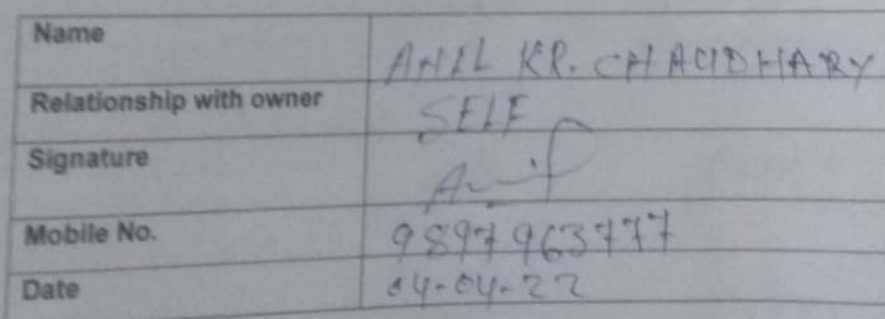 Name ANIL KR. CHAUDHARY
Relationship with owner SELF
Signature Anil
Mobile No. 9897963777
Date 04-04-22